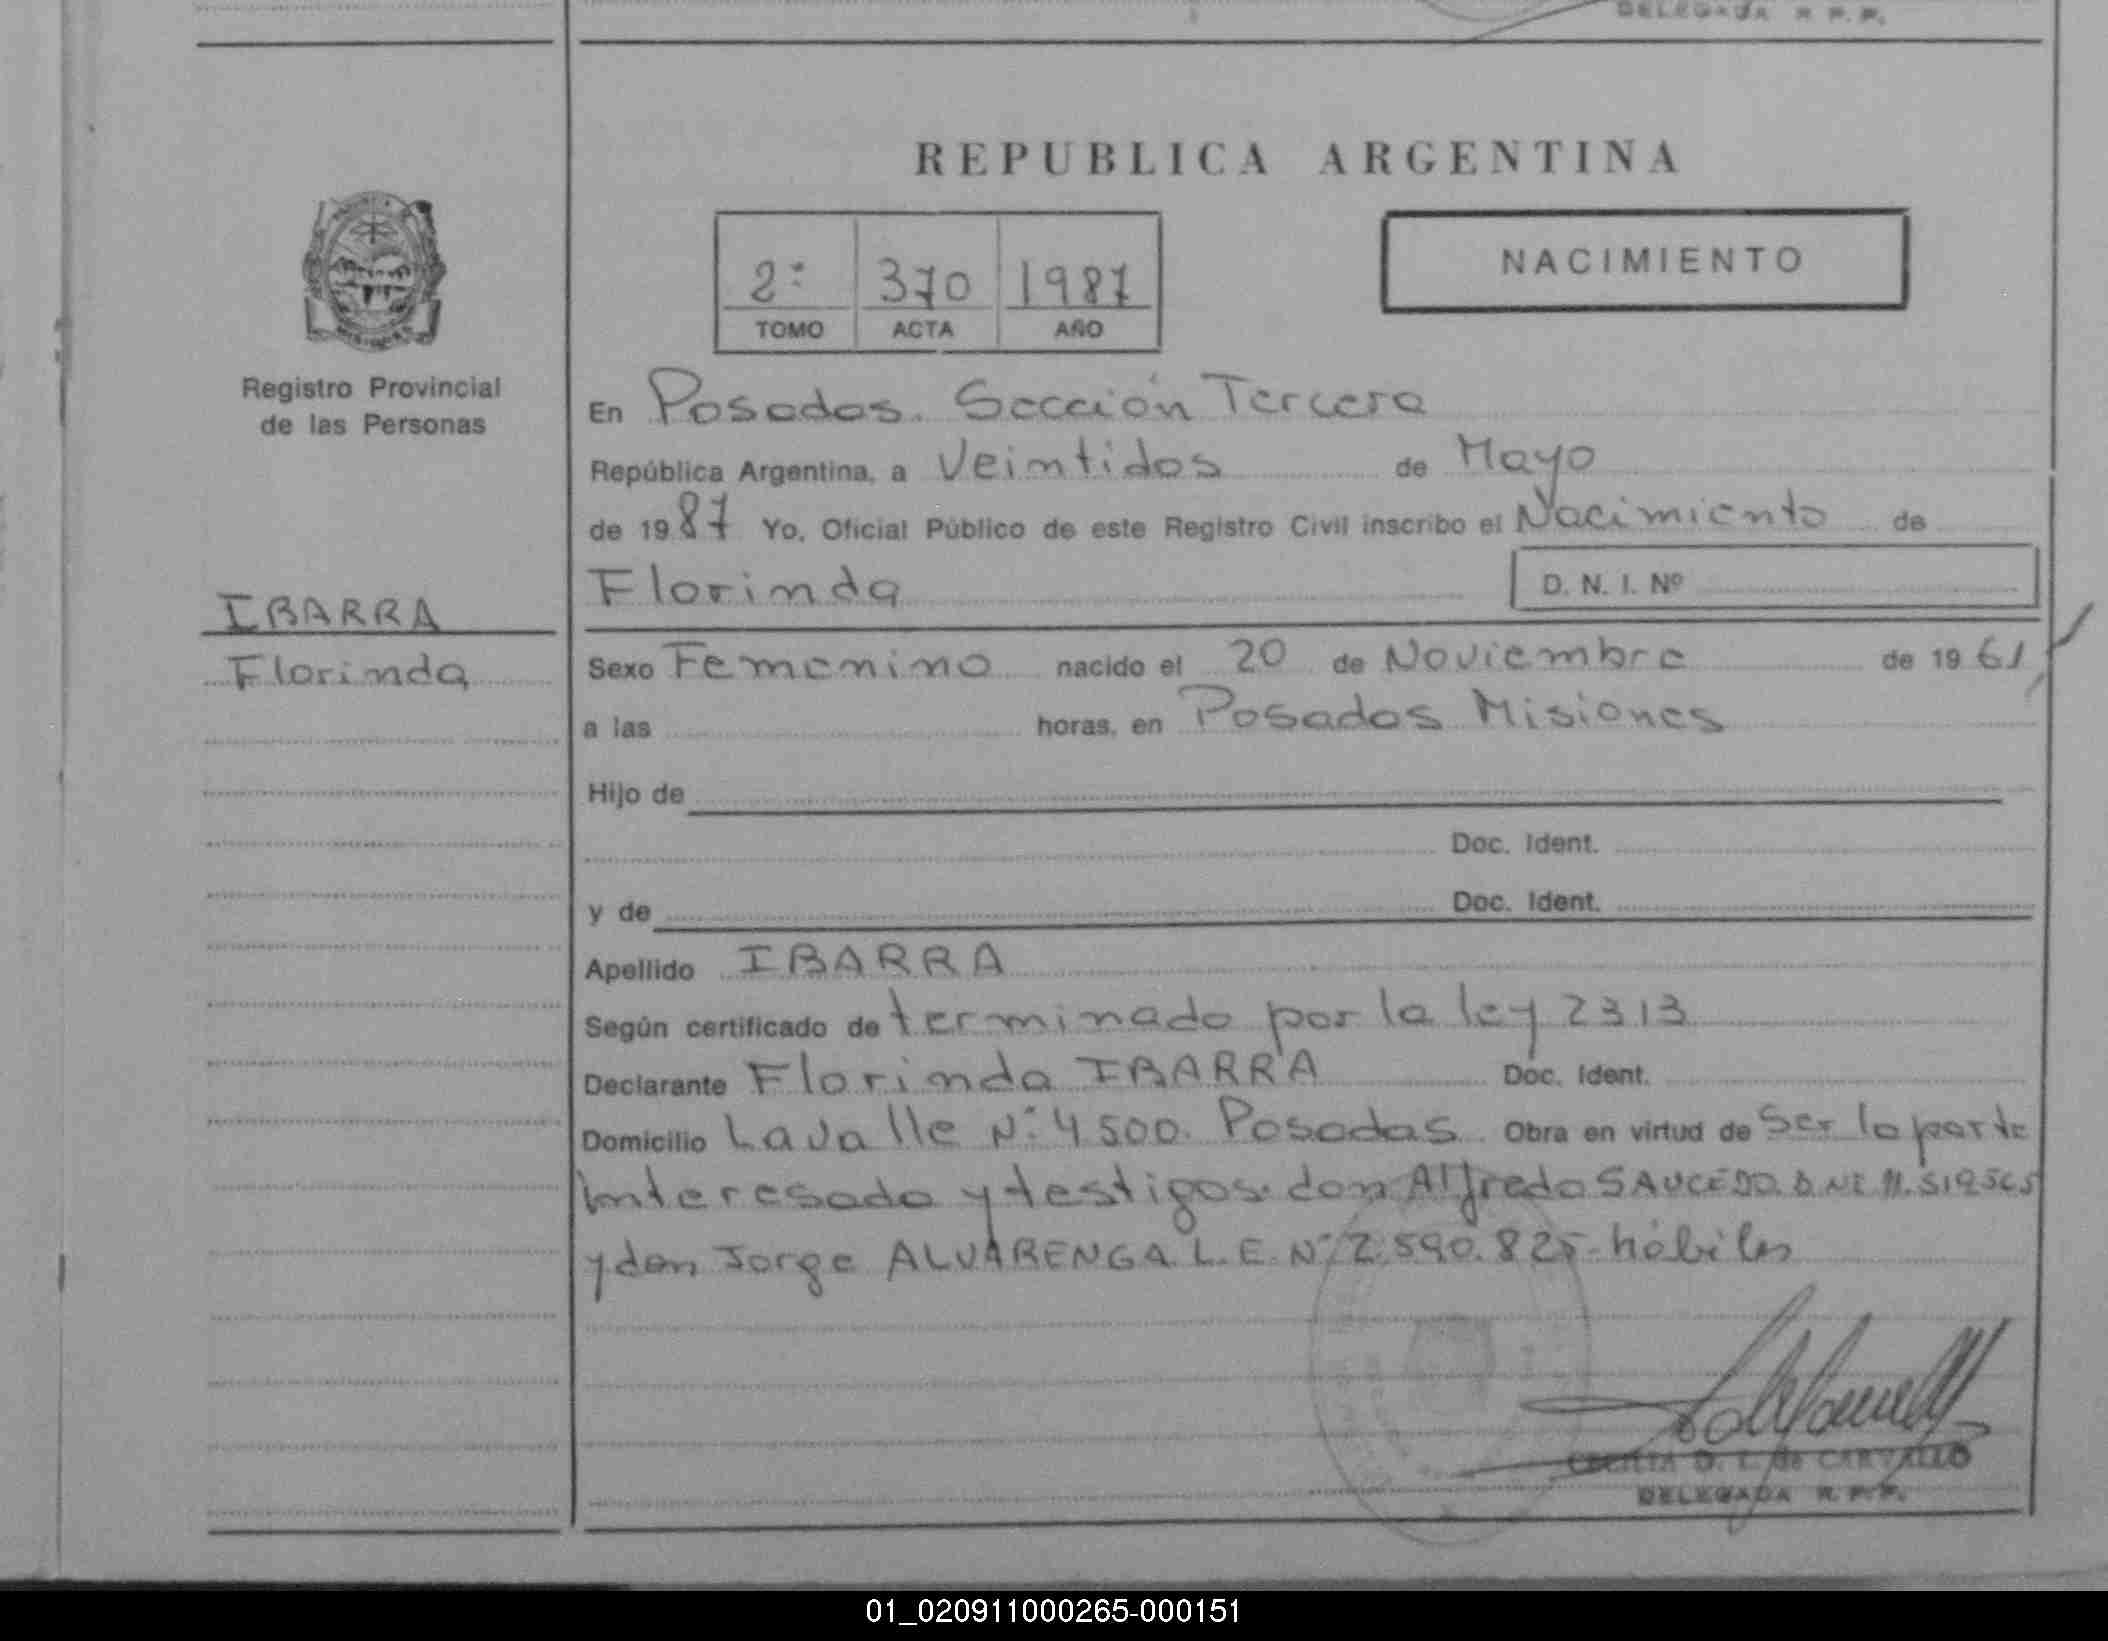 DELEGADA R. P. P.
REPUBLICA ARGENTINA
2º 370 1987
TOMO ACTA AÑO
NACIMIENTO
Registro Provincial
de las Personas
En Posadas. Sección Tercera
República Argentina, a Veintidos de Mayo
de 1987 Yo, Oficial Público de este Registro Civil inscribo el Nacimiento de
Florinda D. N. I. Nº
IBARRA
Florinda
Sexo Femenino nacido el 20 de Noviembre de 1961
a las horas, en Posadas Misiones
Hijo de
Doc. Ident.
y de Doc. Ident.
Apellido IBARRA
Según certificado de terminado por la ley 2313
Declarante Florinda IBARRA Doc. Ident.
Domicilio Lavalle Nº 4500. Posadas. Obra en virtud de Ser la parte
interesada y testigos. don Alfredo SAUCEDO. D NI
y don Jorge ALVARENGA. L. E. Nº 2.590.825- hábiles
CECILIA D. L. de CARVALLO
DELEGADA R. P. P.
01_020911000265-000151